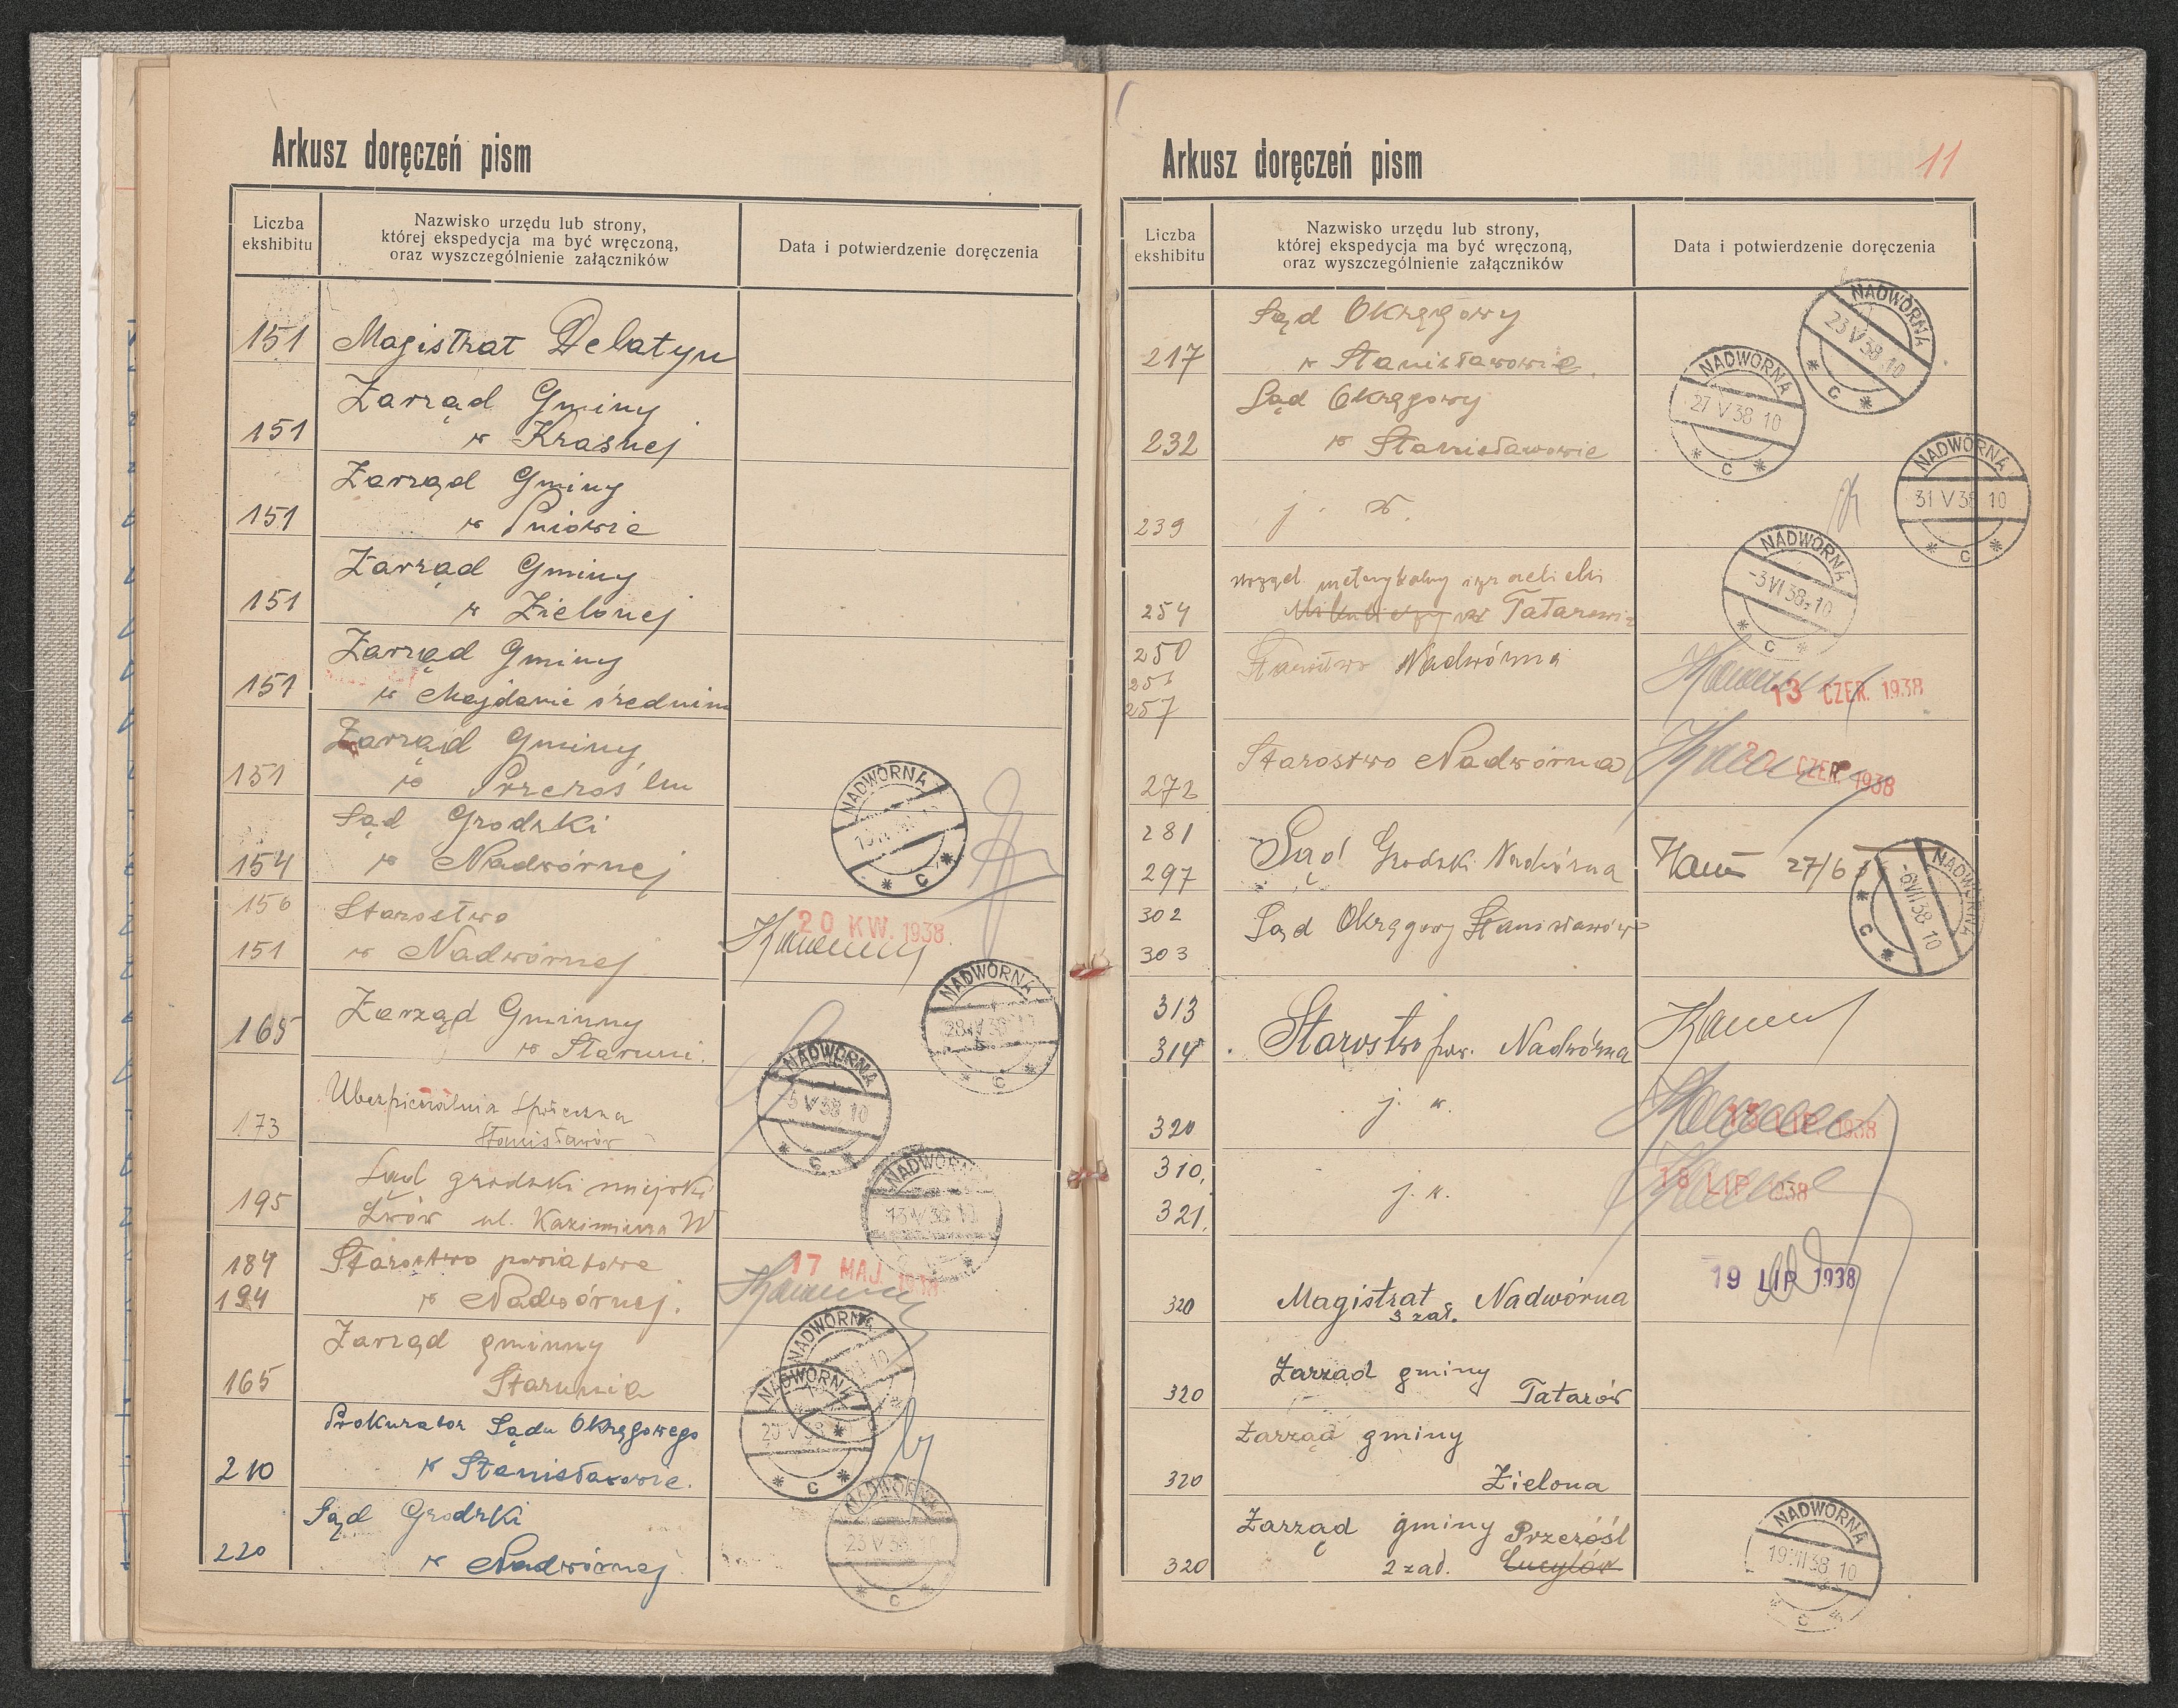 Arkusz doręczeń pism
Liczba
ekshibitu
Nazwisko urzędu lub strony,
której ekspedycja ma być wręczona,
oraz wyszczególnienie załączników
Data i potwierdzenie doręczenia
151 Magistrat Delatyn
Zarząd Gminy
151 w Krasnej
Zarząd Gminy
151 w Pniowie
Zarząd Gminy
151 w Zielonej
Zarząd Gminy
151 w Majdanie średnim
Zarząd Gminy
151 w Przeroślu
Sąd Grodzki
154 w Nadwórnej
NADWÓRNA
C
156 Starostwo
20 KW. 1938
151 w Nadwórnej
Zarząd Gminny
165 w Staruni.
NADWÓRNA
28 IV 38 10
C
Ubezpieczalnia Społeczna
173 Stanisławów
NADWÓRNA
-5 V 38 10
C
Sąd grodzki miejski
195 Lwów ul. Kazimierza W
NADWÓRNA
13 V 38 10
184 Starostwo powiatowe
17 MAJ. 1938
194 w Nadwórnej.
Zarząd gminny
165 Starunia
NADWÓRNA
10
Prokurator Sądu Okręgowego
210 w Stanisławowie.
NADWÓRNA
20 V 38
C
Sąd Grodzki
220 w Nadwórnej
NADWÓRNA
23 V 38 10
C
11
Arkusz doręczeń pism
Liczba
ekshibitu
Nazwisko urzędu lub strony,
której ekspedycja ma być wręczona,
oraz wyszczególnienie załączników
Data i potwierdzenie doręczenia
Sąd Okręgowy
217 w Stanisławowie.
NADWÓRNA
23 V 38 10
C
Sąd Okręgowy
232 w Stanisławowie
NADWÓRNA
27 V 38 10
C
239 j. w.
NADWÓRNA
31 V 38 10
C
urząd metrykalny izraelicki
254 w Tatarowie
NADWÓRNA
-3 VI 38 10
C
250 Nadwórna
257
13 CZER. 1938
Starostwo Nadwórna
272
22 CZER. 1938
281
Sąd Grodzki Nadwórna
297
27/6
302
Sąd Okręgowy Stanisławów
303
NADWÓRNA
-6 VII 38 10
C
313
314 Starostwo pow. Nadwórna
j. w.
320
LIP. 1938
310,
j. w.
321,
18 LIP 1938
320 Magistrat Nadwórna
3 zał.
19 LIP 1938
Zarząd gminy
320 Tatarów
Zarząd gminy
320 Zielona
Zarząd gminy Przerośl
320 2 zał. Łucyłów
NADWÓRNA
19 VII 38 10
C